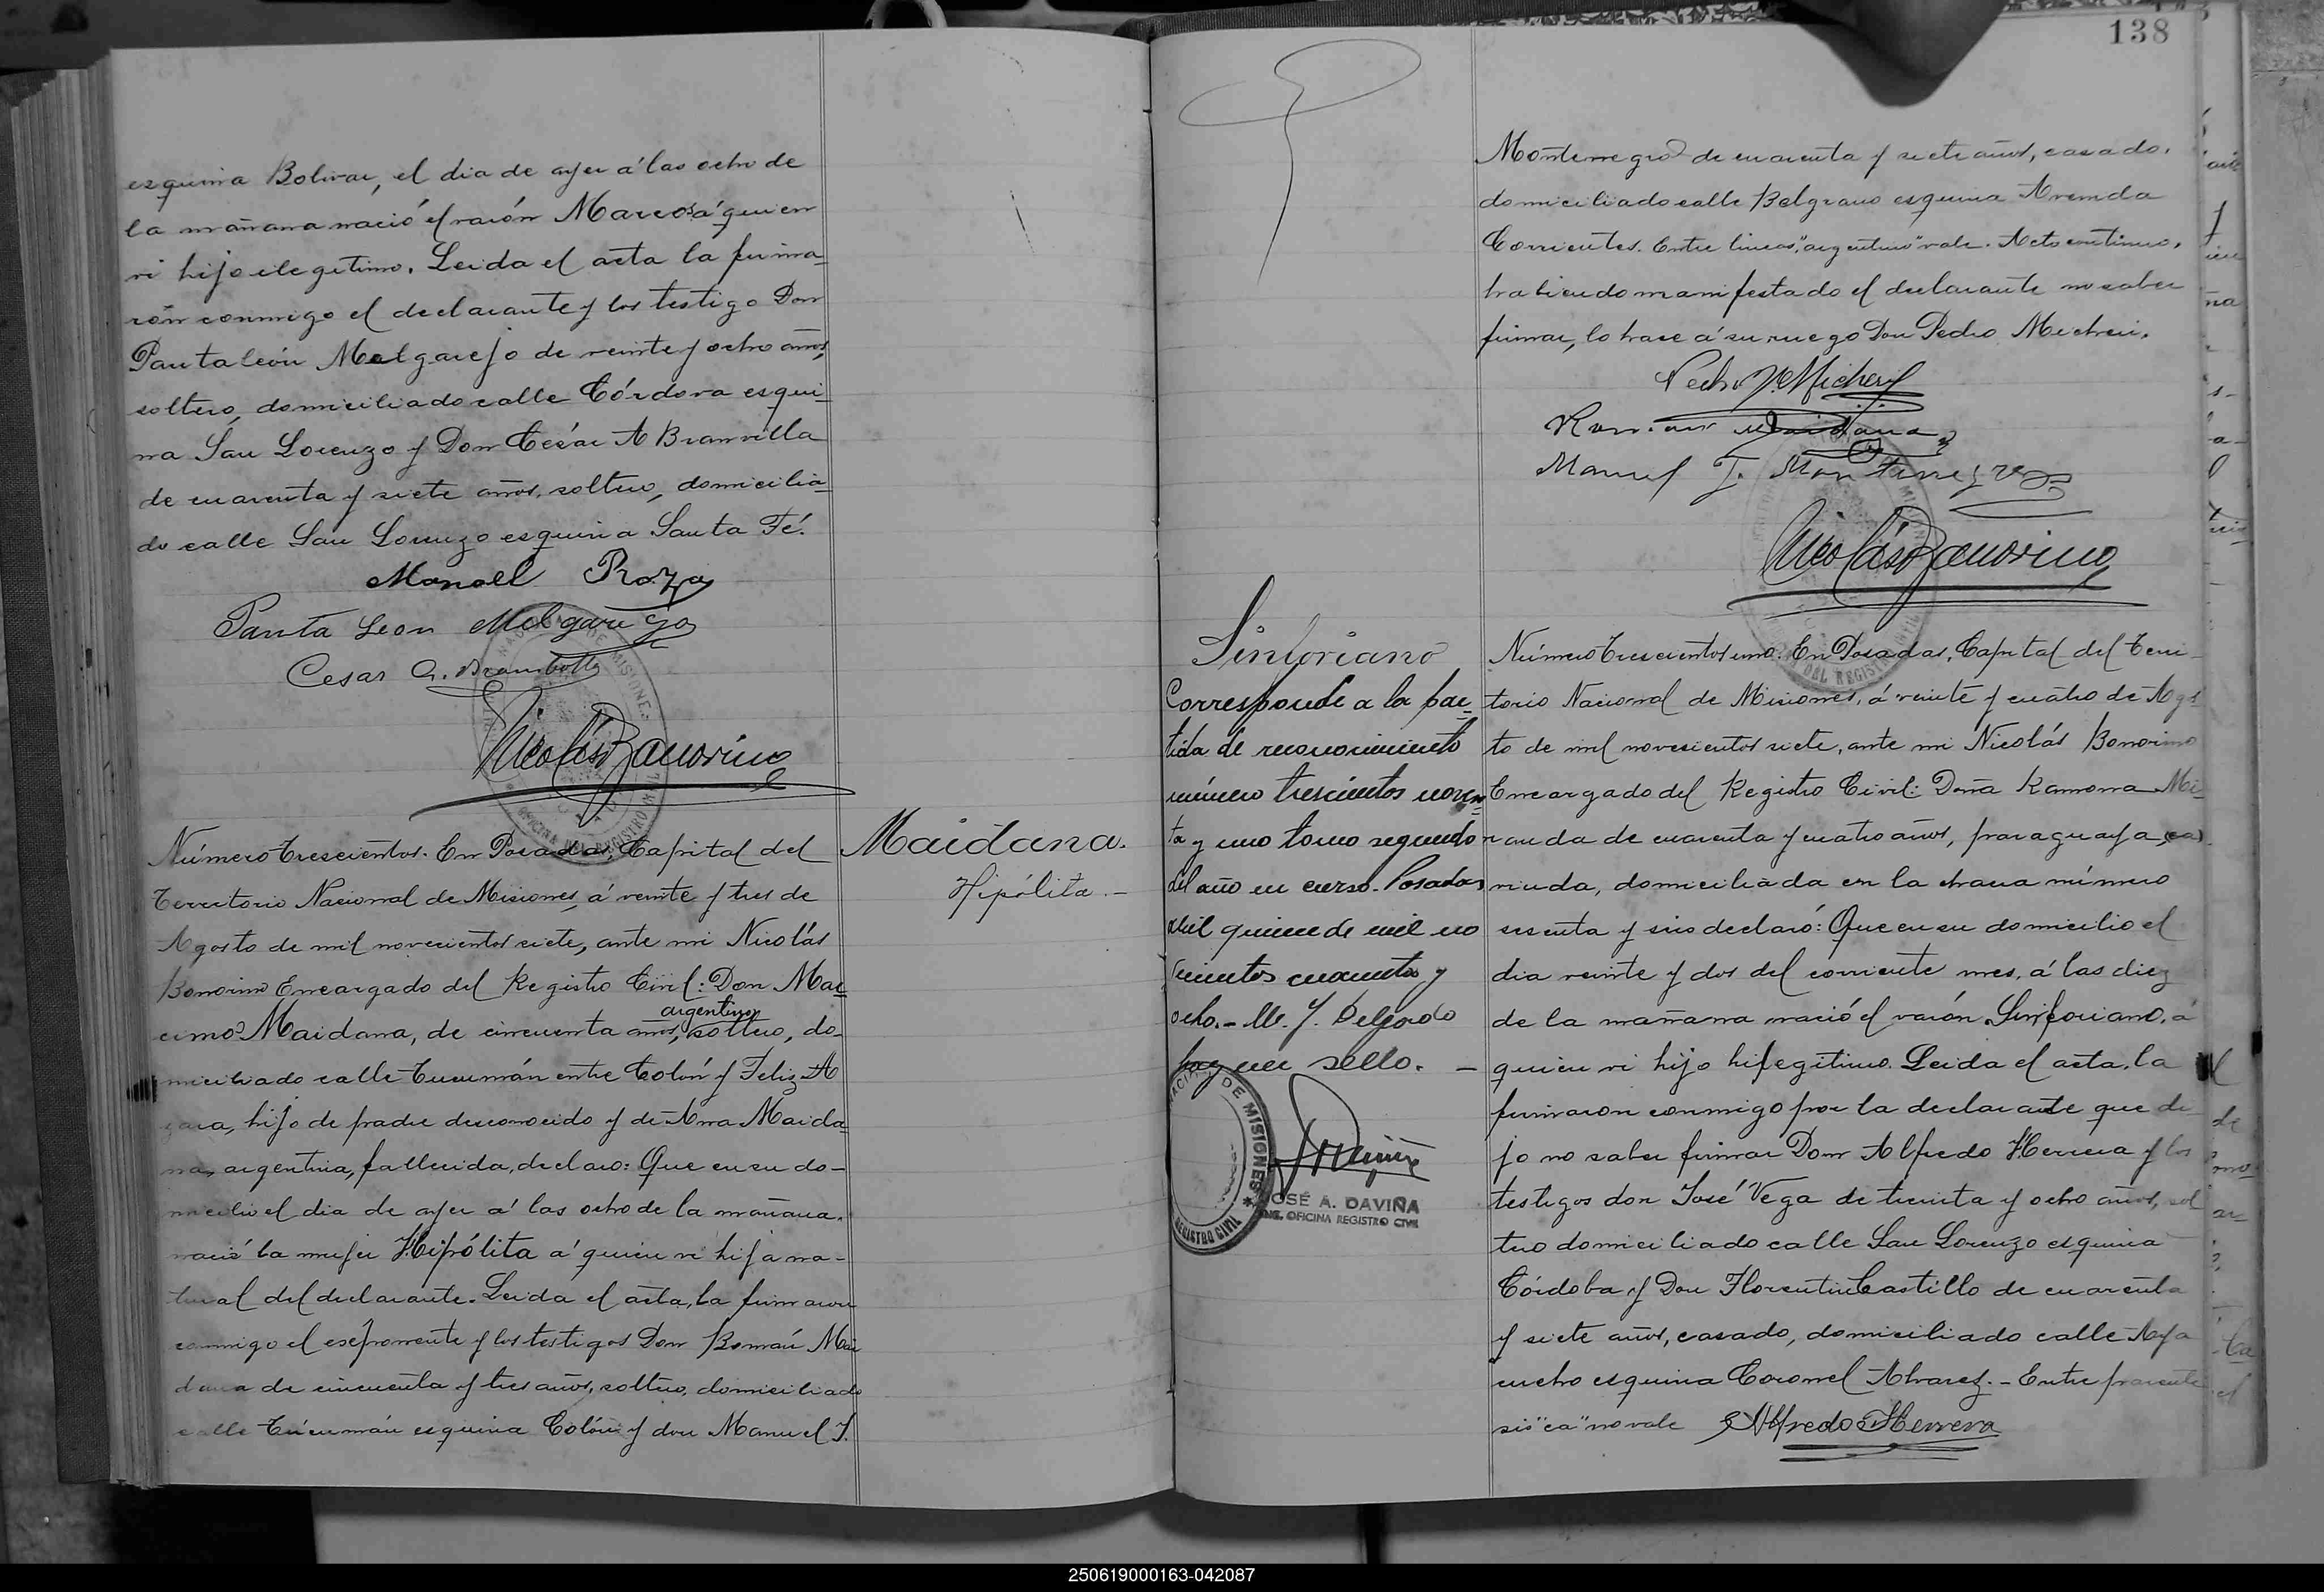 esquina Bolivar, el dia de ayer á las ocho de
la mañana nació el varón Marcos á quien
vi hijo ilegitimo. Leida el acta la firma-
rón conmigo el declarante y los testigo Don
Pantaleón Melgarejo de veinte y ocho años,
soltero, domiciliado calle Córdova esqui-
na San Lorenzo y Don César A Bramvilla
de cuarenta y siete años, soltero, domicilia-
do calle San Lorenzo esquina Santa Fé.
Manoel Roza
Panta Leon Melgarejo
Cesar A. Brambolla
Nicolás Bonorino
Número trescientos. En Posadas, Capital del
Territorio Nacional de Misiones, á veinte y tres de
Agosto de mil novecientos siete, ante mi Nicolás
Bonorino Encargado del Registro Civil: Don Mar-
argentino
cimo Maidana, de cincuenta años, soltero, do-
miciliado calle Tucumán entre Colón y Feliz A
zara, hijo de padre desconocido y de Ana Maida-
na, argentina, fallecida, declaro: Que en su do-
micilio el dia de ayer á las ocho de la mañana.
nació la mujer Hipólita á quien vi hija na-
tural del declarante. Leida el acta, la firmaron
conmigo el exponente y los testigos Don Román Mai
dana de cincuenta y tres años, soltero, domiciliado
calle Tucumán esquina Colón y don Manuel J.
Maidana.
Hipólita.-
138
Montenegro de cuarenta y siete años, casado,
domiciliado calle Belgrano esquina Avenida
Corrientes. Entre lineas, "argentino" vale. Acto continuo,
habiendo manifestado el declarante no saber
firmar, lo hace á su ruego Don Pedro Micheri.
Pedro J. Micheri
Roman Maidana
Manuel J. Montenegro
Nicolás Bonorino
Sinforiano
Corresponde a la par-
tida de reconocimiento
número trescientos noven-
ta y uno tomo segundo
del año en curso. Posadas
abril quince de mil no
vecientos cuarenta y
ocho.- M. J. Delgado
hay un sello. -
DE MISIONES
REGISTRO CIVIL
JOSÉ A. DAVIÑA
ENC. OFICINA REGISTRO CIVIL
Número trescientos uno. En Posadas, Capital del Terri-
torio Nacional de Misiones, á veinte y cuatro de Agos
to de mil novecientos siete, ante mi Nicolás Bonorino
Encargado del Registro Civil: Doña Ramona Mi-
randa de cuarenta y cuatro años, paraguaya, (ca)
viuda, domiciliada en la chacra número
sesenta y seis declaró: Que en su domicilio el
dia veinte y dos del corriente mes, á las diez
de la mañana nació el varón Sinforiano, á
quien vi hijo hilegitimo. Leida el acta, la
firmaron conmigo por la declarante que di
jo no saber firmar Don Alfredo Herrera y los
testigos don José Vega de treinta y ocho años, sol
tero domiciliado calle San Lorenzo esquina
Córdoba y Don Florentin Castillo de cuarenta
y siete años, casado, domiciliado calle Aya
cucho esquina Coronel Alvarez.- Entre parente
sis "ca" no vale Alfredo Herrera
250619000163-042087